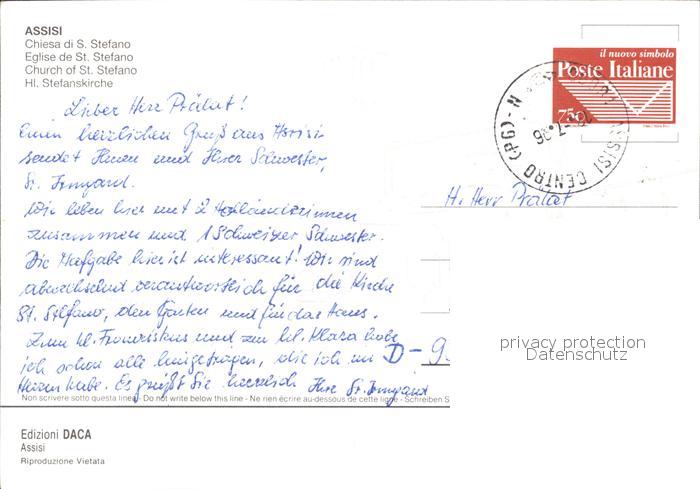 ASSISI
Chiesa di S. Stefano
Eglise de St. Stefano
Church of St. Stefano
Hl. Stefanskirche
il nuovo simbolo
Poste Italiane
750
ASSISI CENTRO (PG) - N
Lieber Herr Prälat!
Einen herzlichen Gruß aus Assisi
sendet Ihnen und Ihrer Schwester,
Sr. Irmgard.
Wir leben hier mit 2 Holländerinnen
zusammen und 1 Schweizer Schwester.
Die Aufgabe hier ist interessant! Wir sind
abwechselnd verantwortlich für die Kirche
St. Stefano, den Garten und für das Haus.
Zum hl. Franziskus und zur hl. Klara habe
ich schon alle hingetragen, die ich im
Herzen habe. Es grüßt Sie herzlich Ihre Sr. Irmgard
H. Herr Prälat
D-9
privacy protection
Datenschutz
Non scrivere sotto questa linea - Do not write below this line - Ne rien écrire au-dessous de cette ligne - Schreiben S
Edizioni DACA
Assisi
Riproduzione Vietata